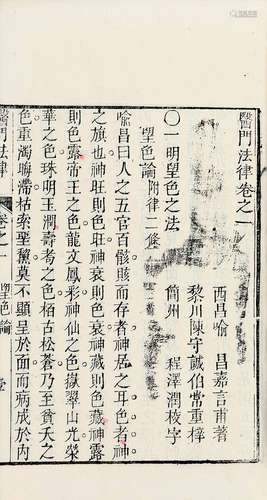 醫門法律卷之一
西昌喻 昌嘉言甫著
黎川陳守誠伯常重梓
簡州 程澤潤校字
〇一明望色之法
望色論附律二條
喻昌曰人之五官百骸賅而存者神居之耳色者神
之旗也神旺則色旺神衰則色衰神藏則色藏神露
則色露帝王之色龍文鳳彩神仙之色嶽翠山光榮
華之色珠明玉潤壽耇之色栢古松蒼乃至貧夭之
色重濁晦滯枯索垩黧莫不顯呈於面而病成於內
醫門法律
卷之一
望色論